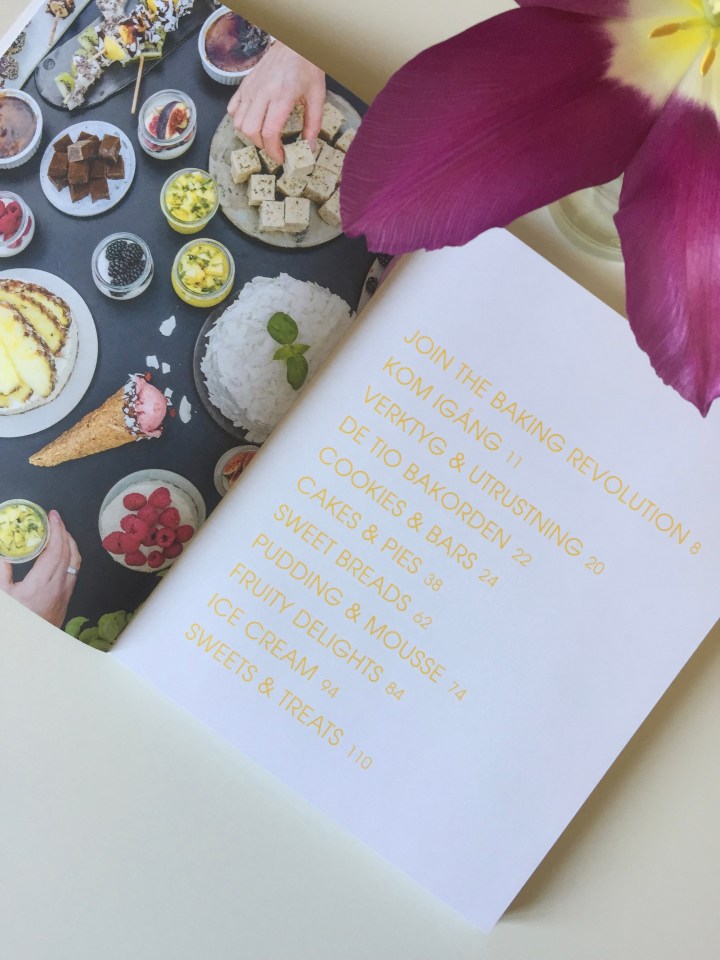 JOIN THE BAKING REVOLUTION 8
KOM IGÅNG 11
VERKTYG & UTRUSTNING 20
DE TIO BAKORDEN 22
COOKIES & BARS 24
CAKES & PIES 38
SWEET BREADS 62
PUDDING & MOUSSE 74
FRUITY DELIGHTS 84
ICE CREAM 94
SWEETS & TREATS 110